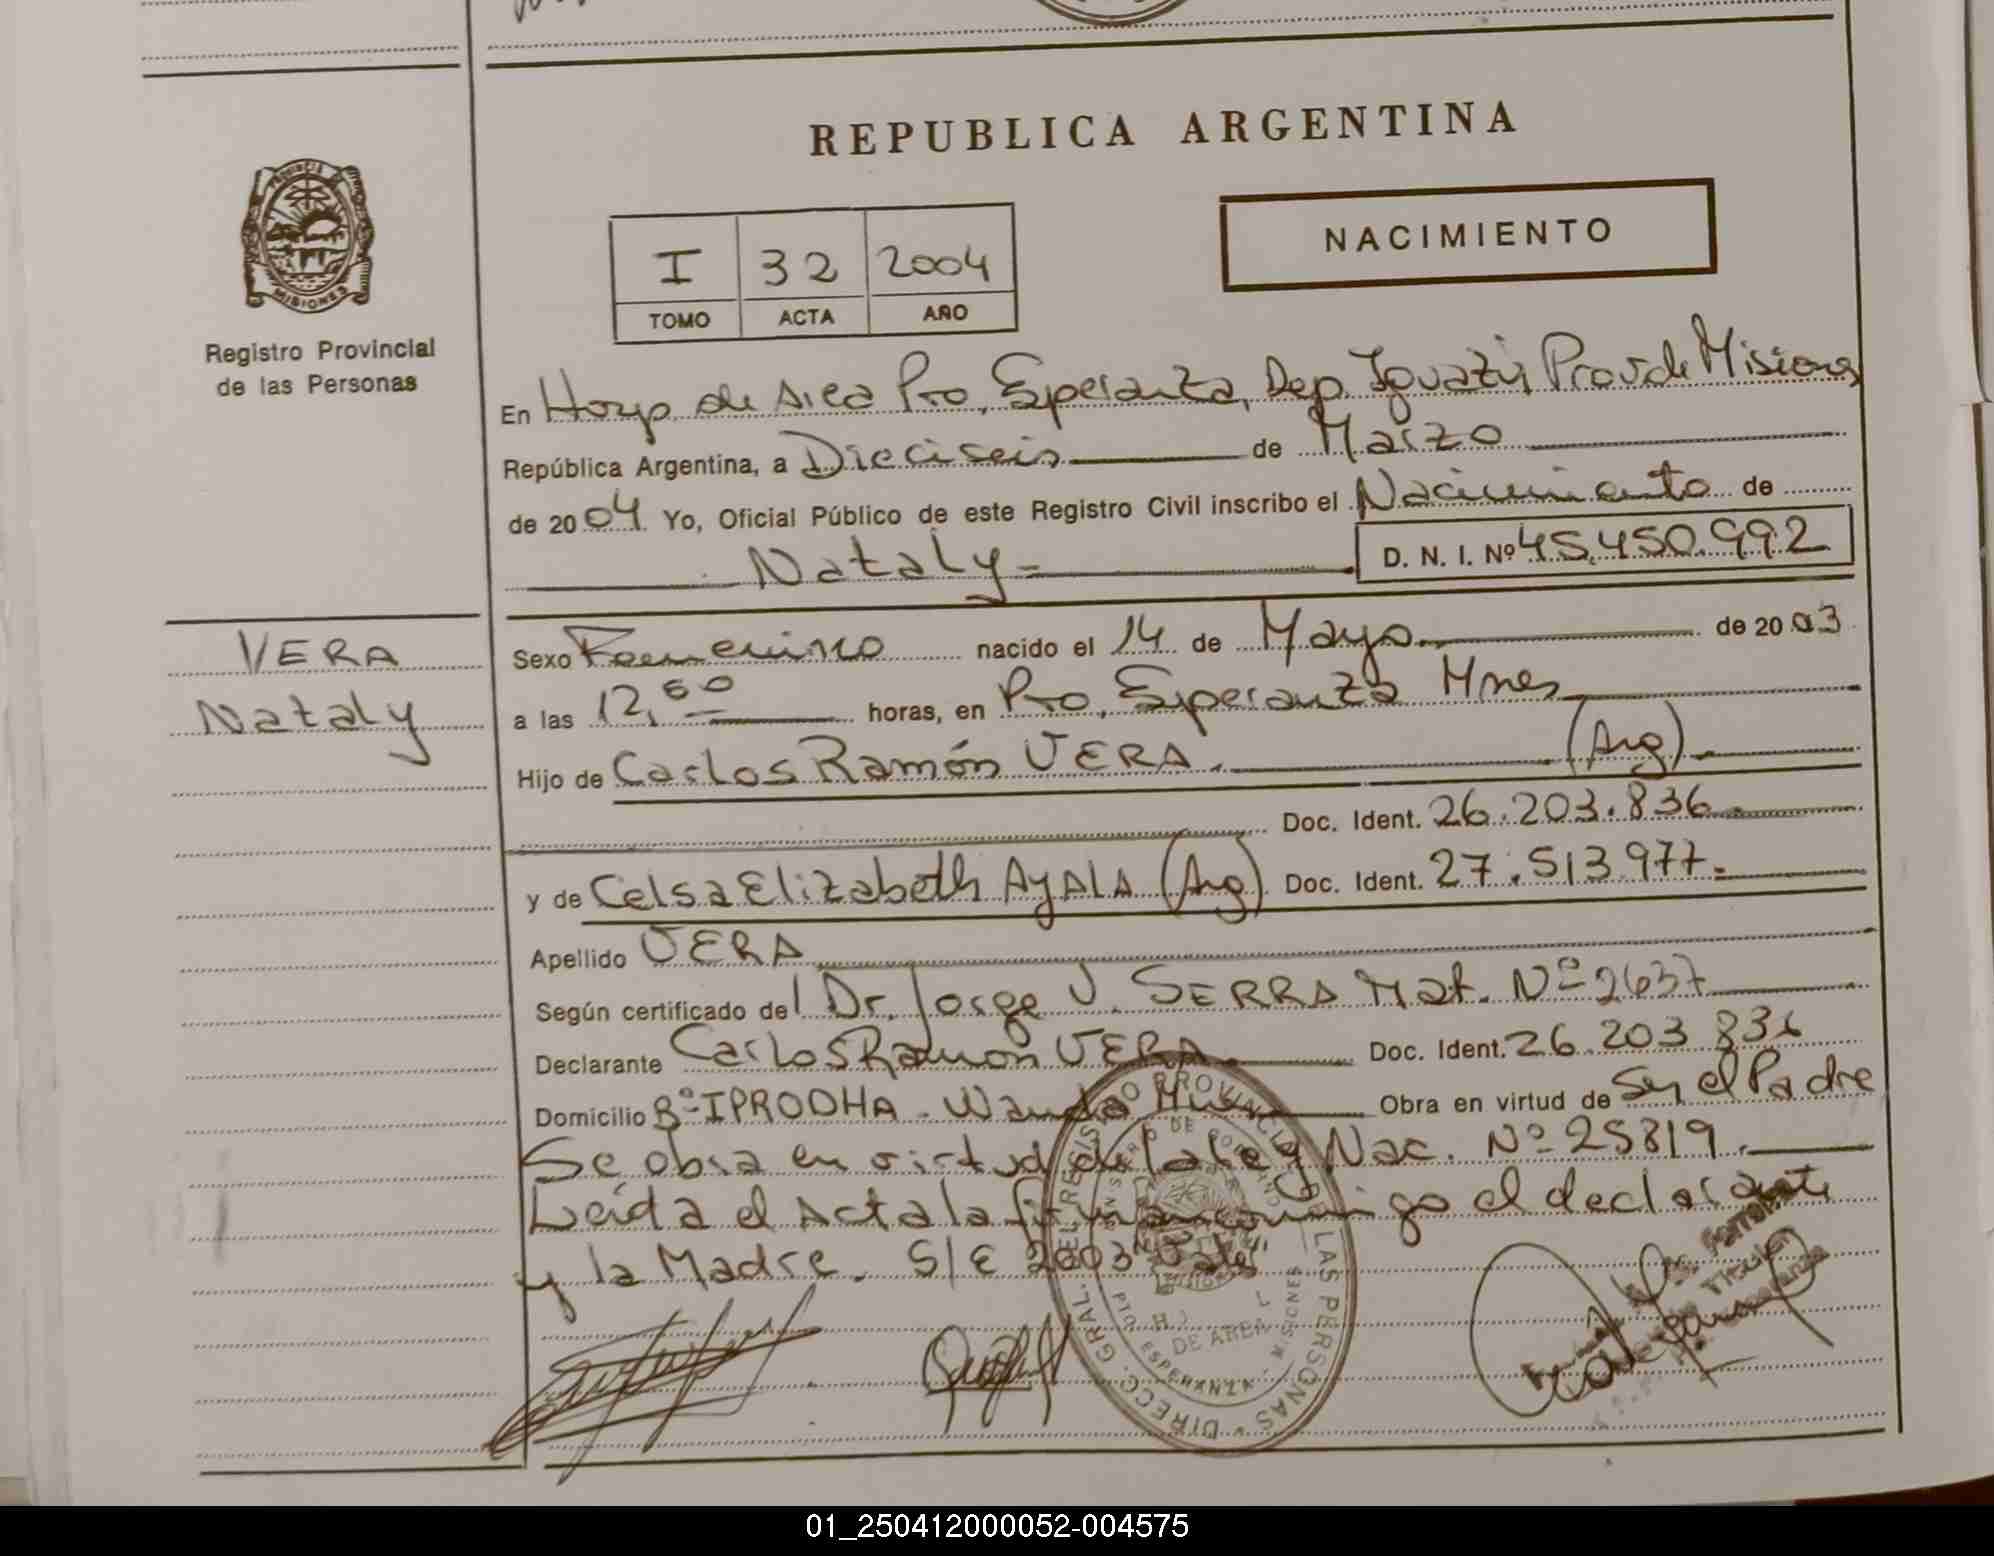 REPUBLICA ARGENTINA
PROVINCIA
MISIONES
Registro Provincial
de las Personas
I 32 2004
TOMO ACTA AÑO
NACIMIENTO
En Hosp. de Area Pto. Esperanza, Dep. Iguazú, Prov de Misiones
República Argentina, a Dieciseis de Marzo
de 2004 Yo, Oficial Público de este Registro Civil inscribo el Nacimiento de
Nataly
D. N. I. Nº 45.450.992
VERA
Nataly
Sexo Femenino nacido el 14 de Mayo de 2003
a las 12, horas, en Pto. Esperanza Mnes
Hijo de Carlos Ramón VERA. (Arg)
Doc. Ident. 26.203.836
y de Celsa Elizabeth AYALA (Arg) Doc. Ident. 27.513.977
Apellido VERA
Según certificado del Dr. Jorge V. SERRA Mat. Nº 2637
Declarante Carlos Ramon VERA Doc. Ident. 26.203.836
Domicilio Bº IPRODHA - Wanda Obra en virtud de Ser el Padre
Se obra en virtud de la Ley Nac. Nº 25819.
Leída el Acta la firman conmigo el declarante
y la Madre. S/E 2003 "Vale"
DIRECC. GRAL. DEL REGISTRO PROVINCIAL DE LAS PERSONAS
DE AREA
PTO ESPERANZA - MISIONES
Titular
01_250412000052-004575